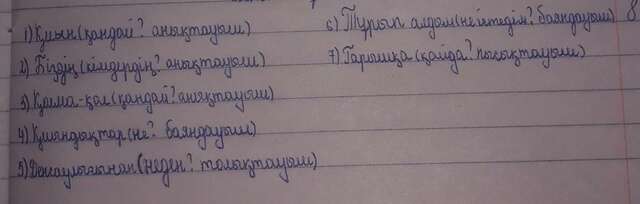 1) Қиын (қандай? анықтауыш)
2) Біздің (кімдердің? анықтауыш)
3) Қолма-қол (қандай? анықтауыш)
4) Қиындықтар (не? баяндауыш)
5) Денсаулығынан (неден? толықтауыш)
6) Тұрып алдым (не істедім? баяндауыш)
7) Ғарышқа (қайда? пысықтауыш)
8